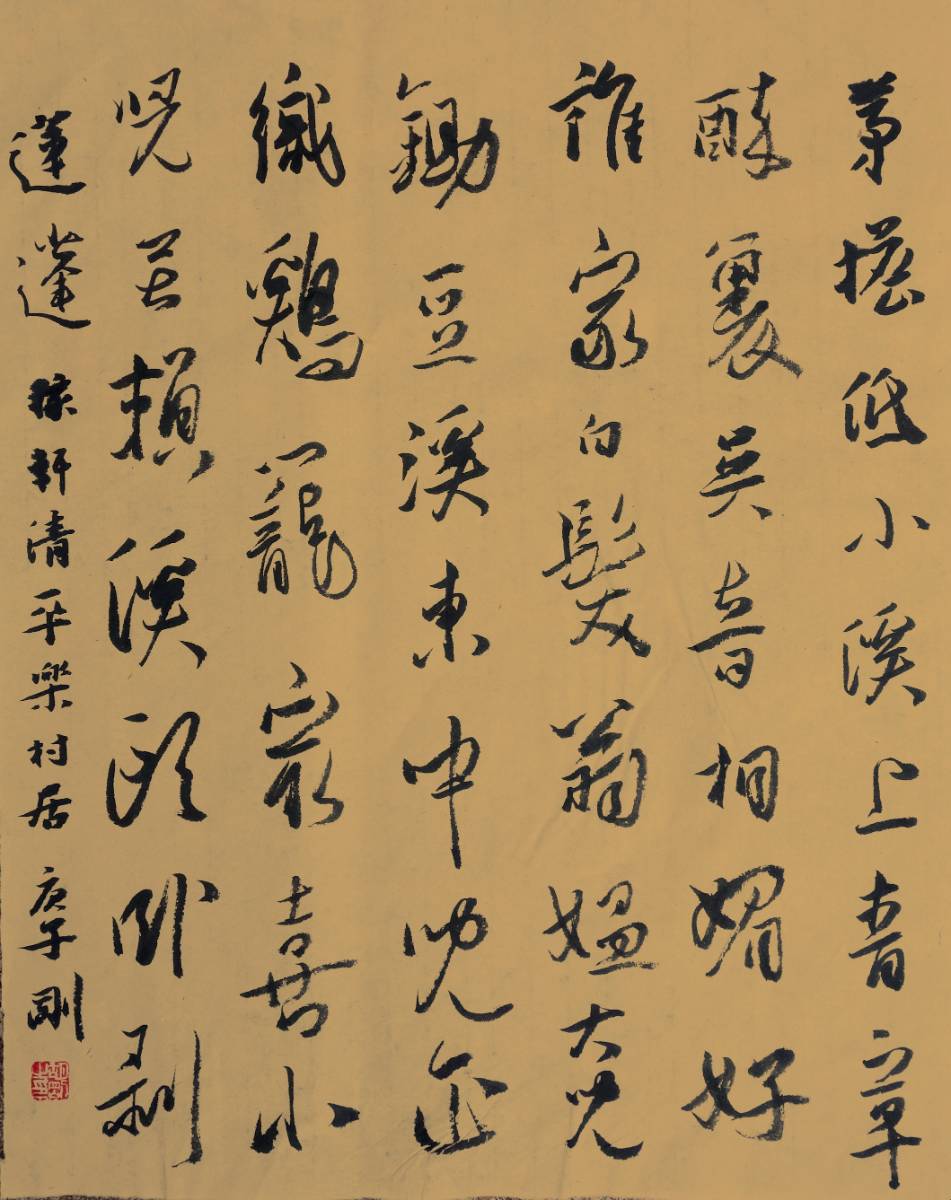 茅檐低小溪上青草
醉裏吴音相媚好
誰家白髮翁媪大兒
鋤豆溪東中兒正
織鷄籠最喜小
兒亡賴溪頭卧剥
蓮蓬 稼軒清平樂村居 庚子 剛